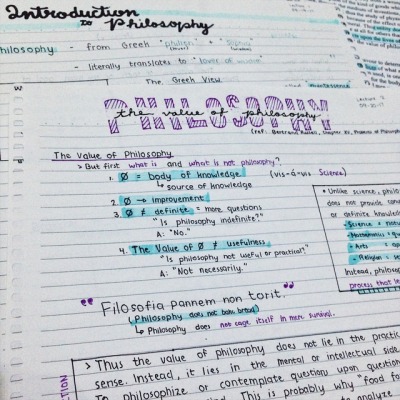 Introduction
to Philosophy
Philosophy - from Greek "philein" + "Sophia"
- literally translates to "lover of wisdom"
The Greek View
PHILOSOPHY
the value of philosophy
The Value of Philosophy
> But first what is and what is not philosophy?
1. Ø = body of knowledge (vis-á-vis Science)
↳ source of knowledge
2. Ø → improvement
3. Ø ≠ definite = more questions
"Is philosophy indefinite?"
A: "No."
4. The Value of Ø ≠ usefulness
"Is philosophy not useful or practical?"
A: "Not necessarily."
"Filosofia pannem non torit."
↳ Philosophy does not bake bread
↳ Philosophy does not cage itself in mere survival.
• Unlike science, philo
does not provide conc
or definite knowled
- Science = natu
- Arts =
- Religion =
Instead, philoso
process that le
> Thus the value of philosophy does not lie in the practic
sense. Instead, it lies in the mental or intellectual side
To philosophize or contemplate question upon question
This is probably why "food fo
to analyze